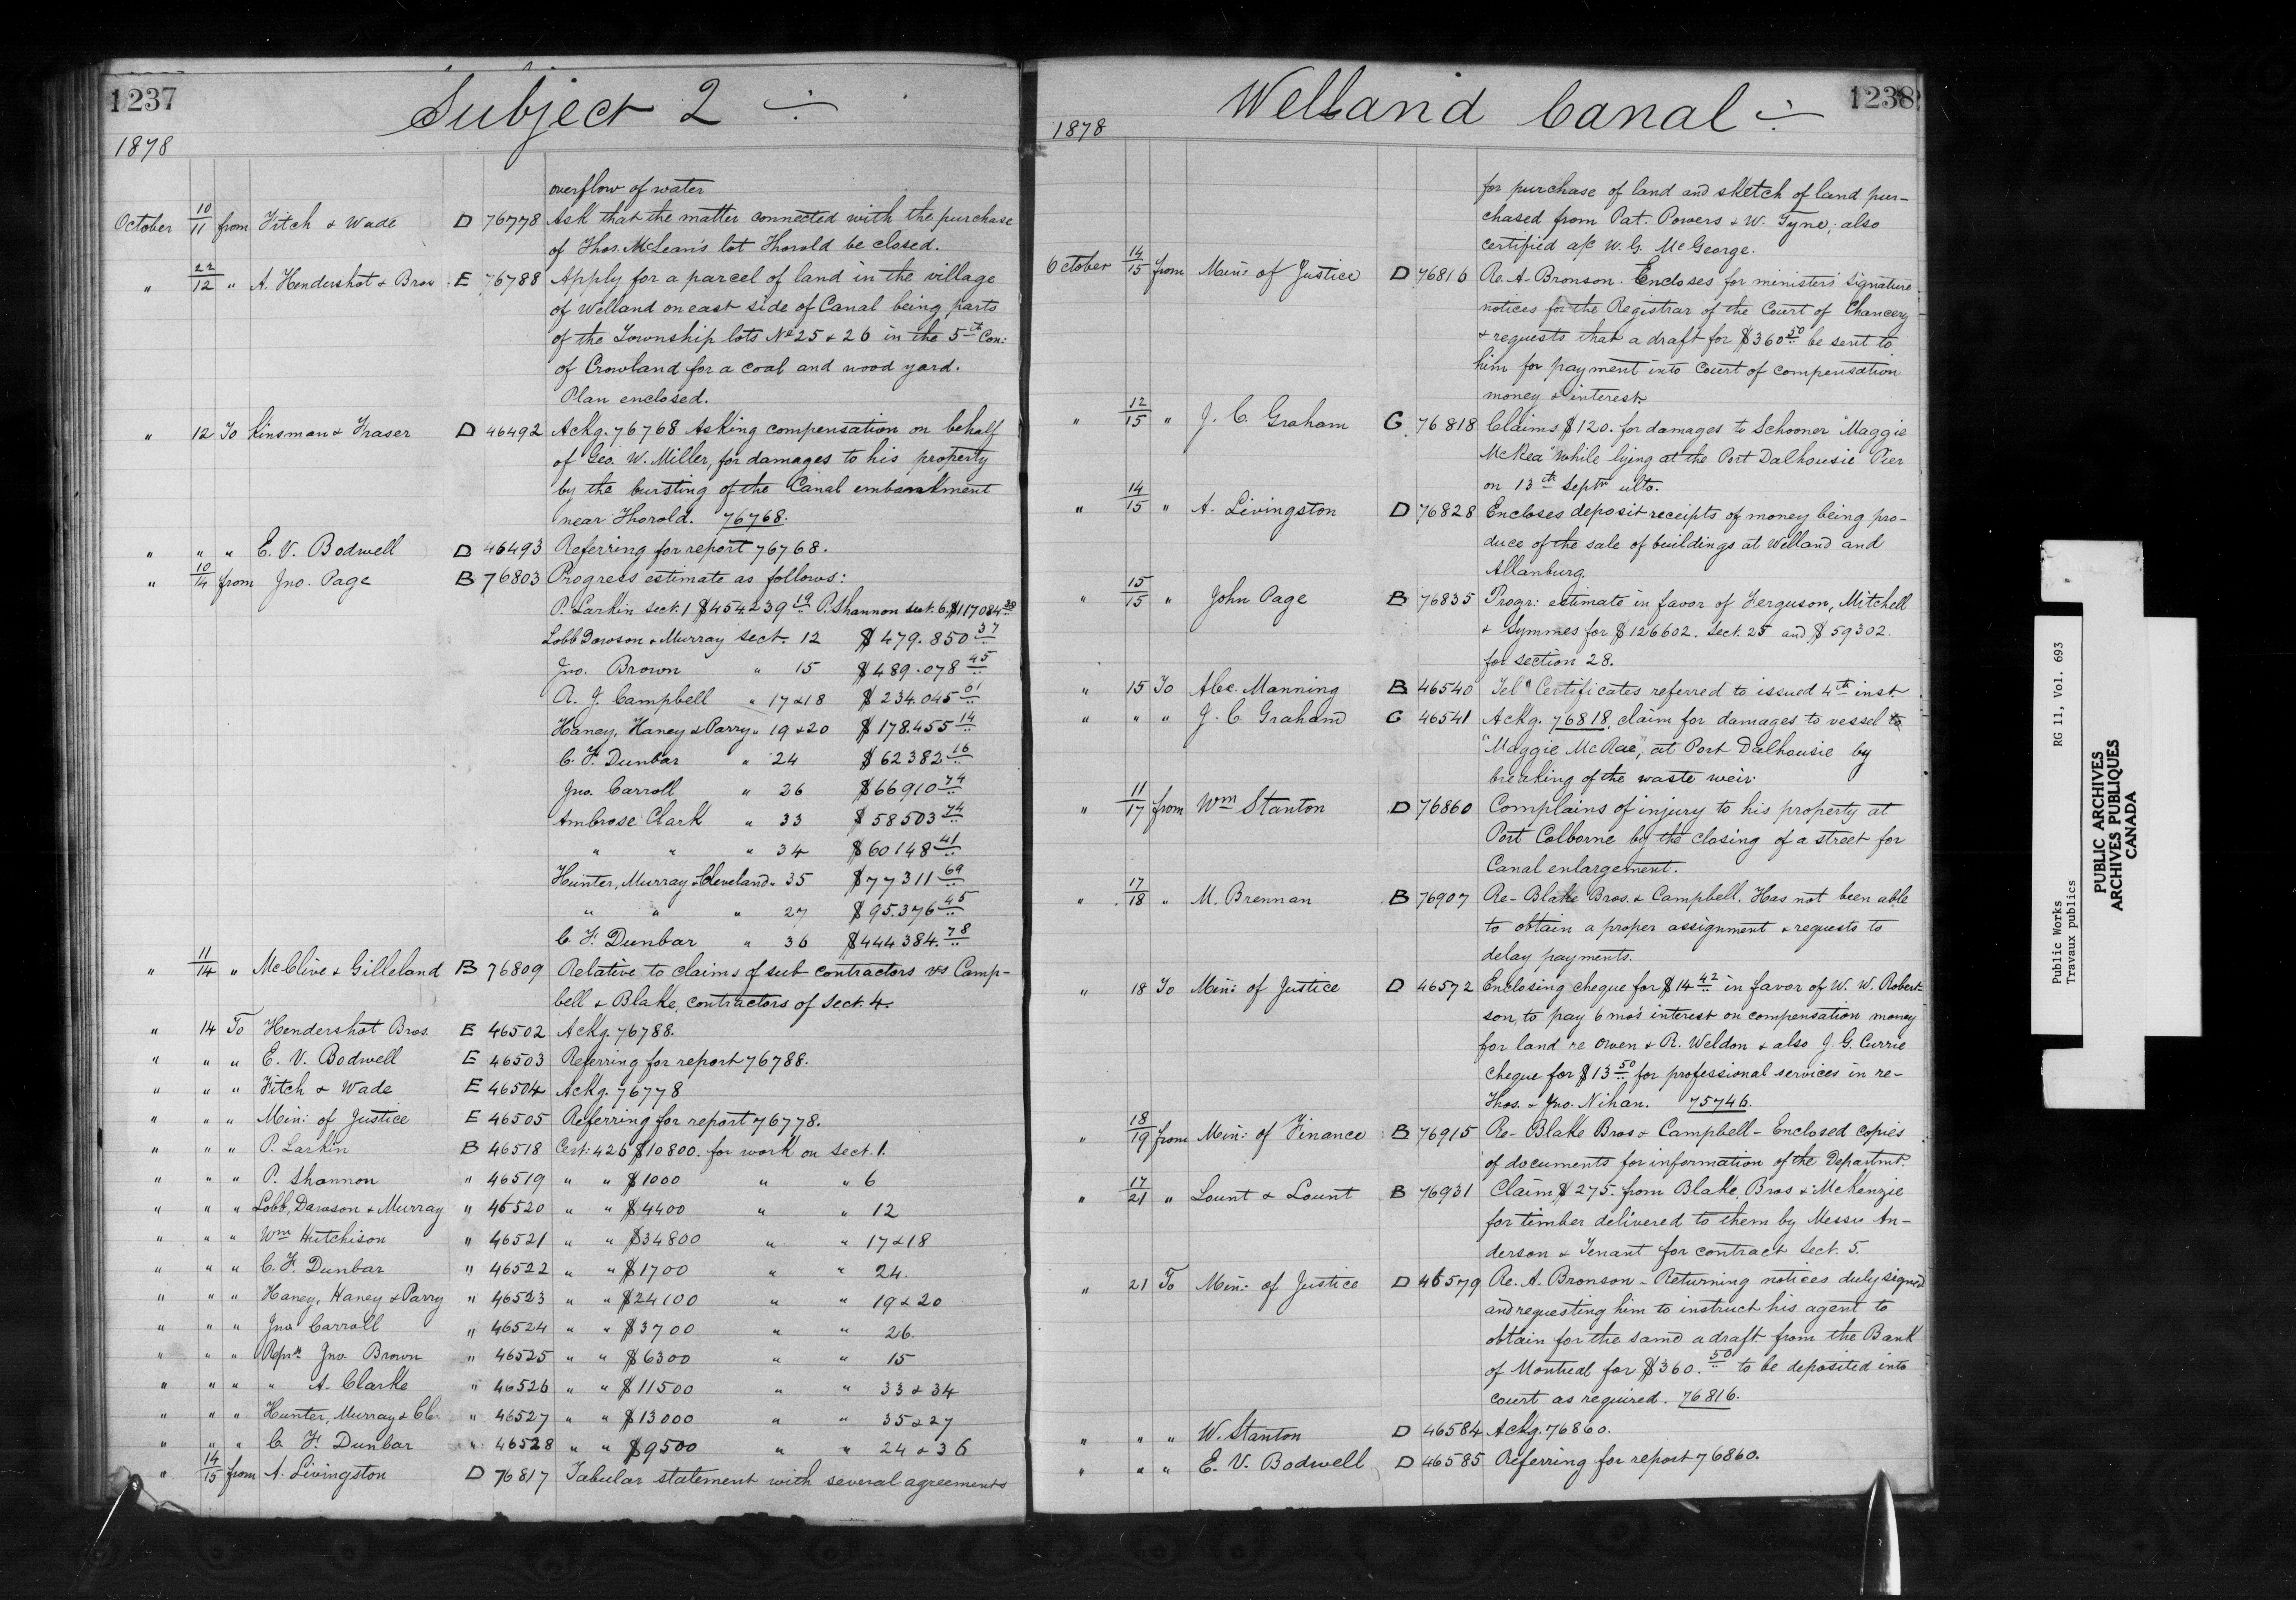 1237
Subject 2
1878
overflow of water
October 10/11 from Fitch & Wade D 76778 Ask that the matter connected with the purchase
of Thos. McLean's lot Thorold be closed.
" 22/12 " A. Hendershot & Bros E 76788 Apply for a parcel of land in the village
of Welland on east side of Canal being parts
of the Township lots No 25 & 26 in the 5th Con:
of Crowland for a coal and wood yard.
Plan enclosed.
" 12 To Kinsman & Fraser D 46492 Ackg. 76768 Asking compensation on behalf
of Geo. W. Miller, for damages to his property
by the bursting of the Canal embankment
near Thorold. 76768.
" " " E. V. Bodwell D 46493 Referring for report 76768.
" 10/14 from Jno. Page B 76803 Progress estimate as follows:
P. Larkin sect. 1 $454239 19 P. Shannon sect. 6 $117084
Lobb Dawson & Murray sect. 12 $479.850 37
Jno. Brown " 15 $489.078 45
A. J. Campbell " 17 & 18 $234.045 61
Haney, Haney & Parry " 19 & 20 $178.455 14
C. F. Dunbar " 24 $62382 16
Jno. Carroll " 26 $66910 74
Ambrose Clark " 33 $58503 74
" " " 34 $60148 41
Hunter, Murray & Cleveland " 35 $77311 69
" " " 27 $95.376 45
C. F. Dunbar " 36 $444384. 78
" 11/14 " McClive & Gilleland B 76809 Relative to claims of sub contractors vs Camp-
bell & Blake, contractors of Sect. 4.
" 14 To Hendershot Bros. E 46502 Ackg. 76788.
" " " E. V. Bodwell E 46503 Referring for report 76788.
" " " Fitch & Wade E 46504 Ackg. 76778
" " " Min: of Justice E 46505 Referring for report 76778.
" " " P. Larkin B 46518 Cert: 426 $10800. for work on Sect. 1.
" " " P. Shannon " 46519 " " $1000 " " 6
" " " Lobb, Dawson & Murray " 46520 " " $4400 " " 12
" " " Wm Hutchison " 46521 " " $34800 " " 17 & 18
" " " C. F. Dunbar " 46522 " " $1700 " " 24.
" " " Haney, Haney & Parry " 46523 " " $24100 " " 19 & 20
" " " Jno Carroll " 46524 " " $3700 " " 26.
" " " Repr Jno Brown " 46525 " " $6300 " " 15
" " " " A. Clarke " 46526 " " $11500 " " 33 & 34
" " " Hunter, Murray & Cle " 46527 " " $13000 " " 35 & 27
" " " C. F. Dunbar " 46528 " " $9500 " " 24 & 36
" 14/15 from A. Livingston D 76817 Tabular statement with several agreements
1238
Welland Canal
1878
for purchase of land and sketch of land pur-
chased from Pat. Powers & W. Tyne; also
certified a/c W. G. McGeorge.
October 14/15 from Min: of Justice D 76816 Re. A. Bronson. Encloses for ministers signature
notices for the Registrar of the Court of Chancery
& requests that a draft for $360 50 be sent to
him for payment into Court of compensation
money & interest.
" 12/15 " J. C. Graham G 76818 Claims $120. for damages to Schooner "Maggie
McRea" while lying at the Port Dalhousie Pier
on 13th Septr ulto.
" 14/15 " A. Livingston D 76828 Encloses deposit receipts of money being pro-
duce of the sale of buildings at Welland and
Allanburg.
" 15/15 " John Page B 76835 Progr: estimate in favor of Ferguson, Mitchell
& Symmes for $126602. Sect. 25 and $59302.
for section 28.
" 15 To Alex. Manning B 46540 Tel Certificates referred to issued 4th inst.
" " " J. C. Graham G 46541 Ackg. 76818 claim for damages to vessel to
"Maggie McRae", at Port Dalhousie by
breaking of the waste weir.
" 11/17 from Wm Stanton D 76860 Complains of injury to his property at
Port Colborne by the closing of a street for
Canal enlargement.
" 17/18 " M. Brennan B 76907 Re- Blake Bros. & Campbell. Has not been able
to obtain a proper assignment & requests to
delay payments.
" 18 To Min: of Justice D 46572 Enclosing cheque for $14 42 in favor of W. W. Robert-
son, to pay 6 mo's interest on compensation money
for land re Owen & R. Weldon & also J. G. Currie
cheque for $13 50 for professional services in re-
Thos. & Jno. Nihan. 75746.
" 18/19 from Min: of Finance B 76915 Re- Blake Bros & Campbell - Enclosed copies
of documents for information of the Departmt.
" 17/21 " Lount & Lount B 76931 Claim $275. from Blake, Bros & McKenzie
for timber delivered to them by Messrs An-
derson & Tenant for contract Sect. 5.
" 21 To Min: of Justice D 46579 Re. A. Bronson - Returning notices duly signed
and requesting him to instruct his agent to
obtain for the same a draft from the Bank
of Montreal for $360. 50 to be deposited into
court as required. 76816.
" " " W. Stanton D 46584 Ackg. 76860.
" " " E. V. Bodwell D 46585 Referring for report 76860.
Public Works RG 11, Vol. 693
Travaux publics
PUBLIC ARCHIVES
ARCHIVES PUBLIQUES
CANADA